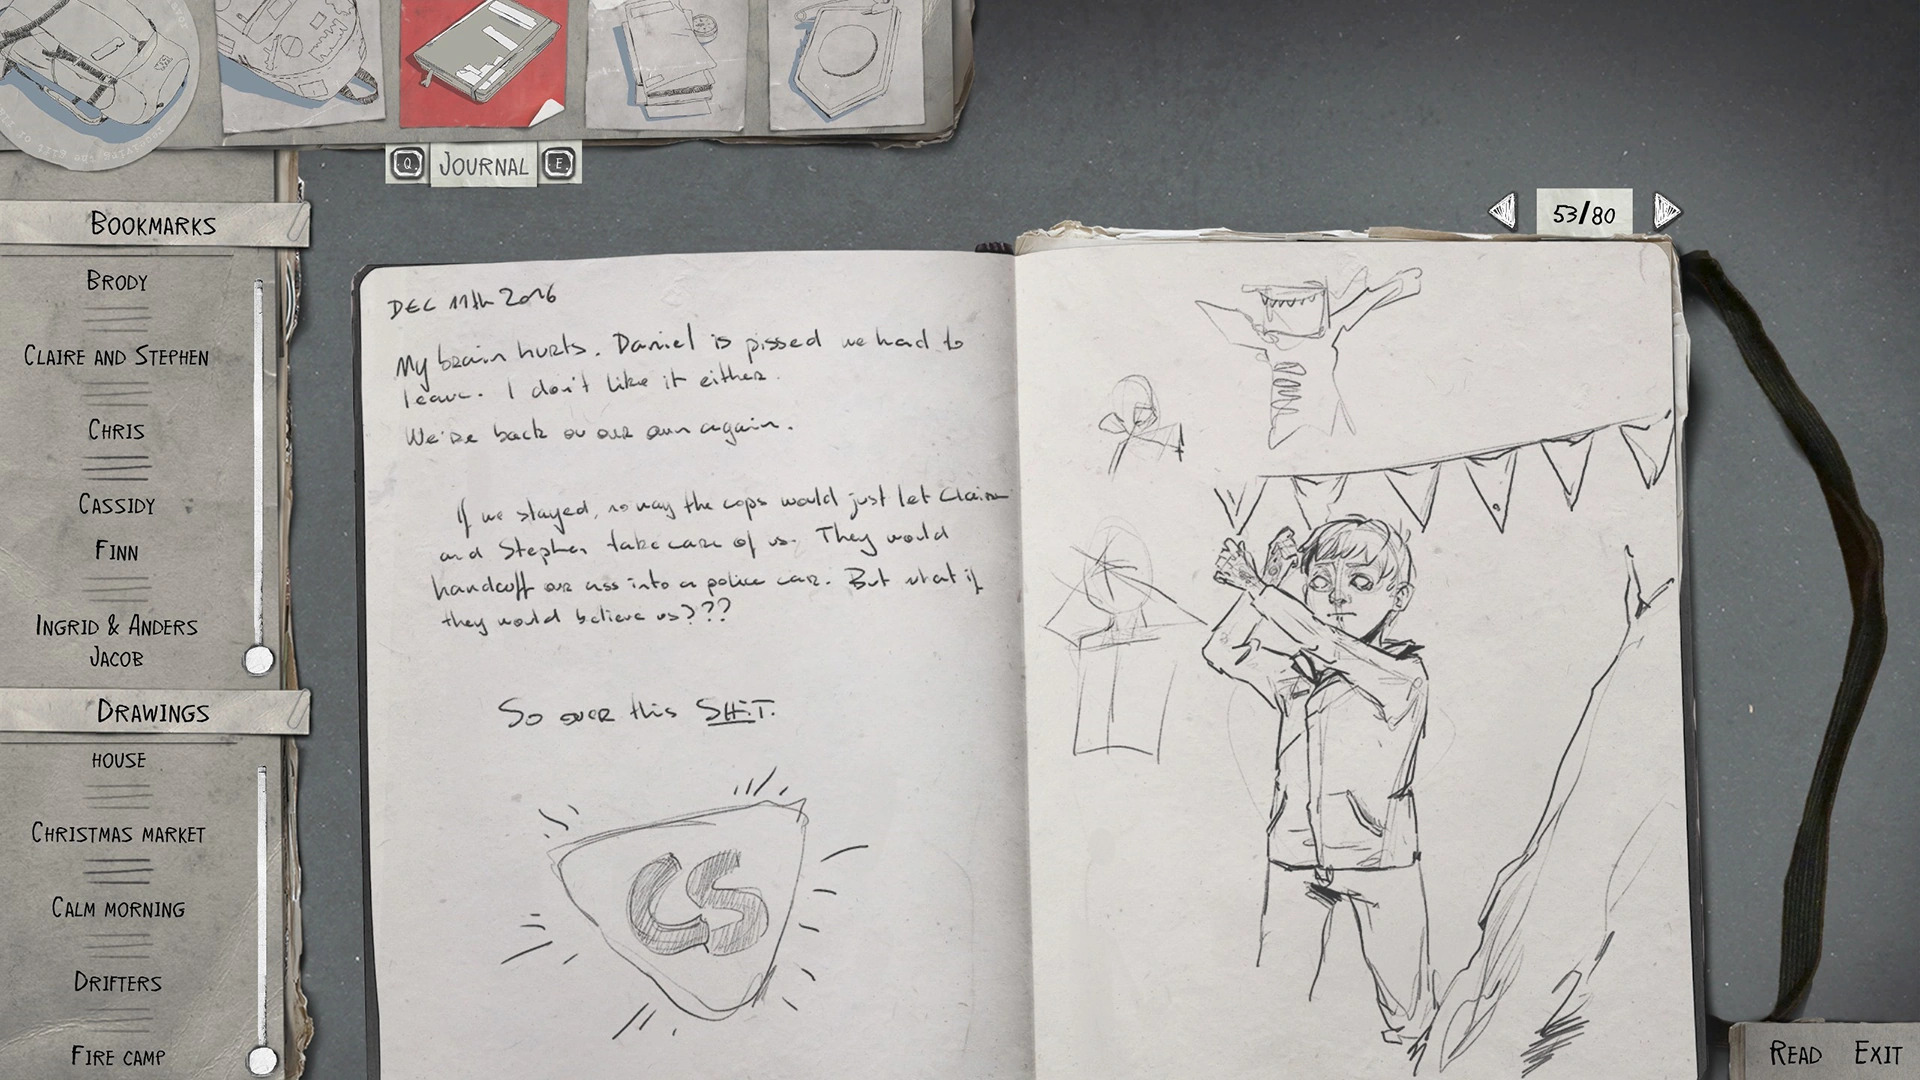 Q JOURNAL E
53/80
BOOKMARKS
BRODY
CLAIRE AND STEPHEN
CHRIS
CASSIDY
FINN
INGRID & ANDERS
JACOB
DRAWINGS
HOUSE
CHRISTMAS MARKET
CALM MORNING
DRIFTERS
FIRE CAMP
DEC 11th 2016
My brain hurts. Daniel is pissed we had to
leave. I don't like it either.
We're back on our own again.
If we stayed, no way the cops would just let Claire
and Stephen take care of us. They would
handcuff our ass into a police car. But what if
they would believe us???
So over this SH.T.
CS
READ EXIT